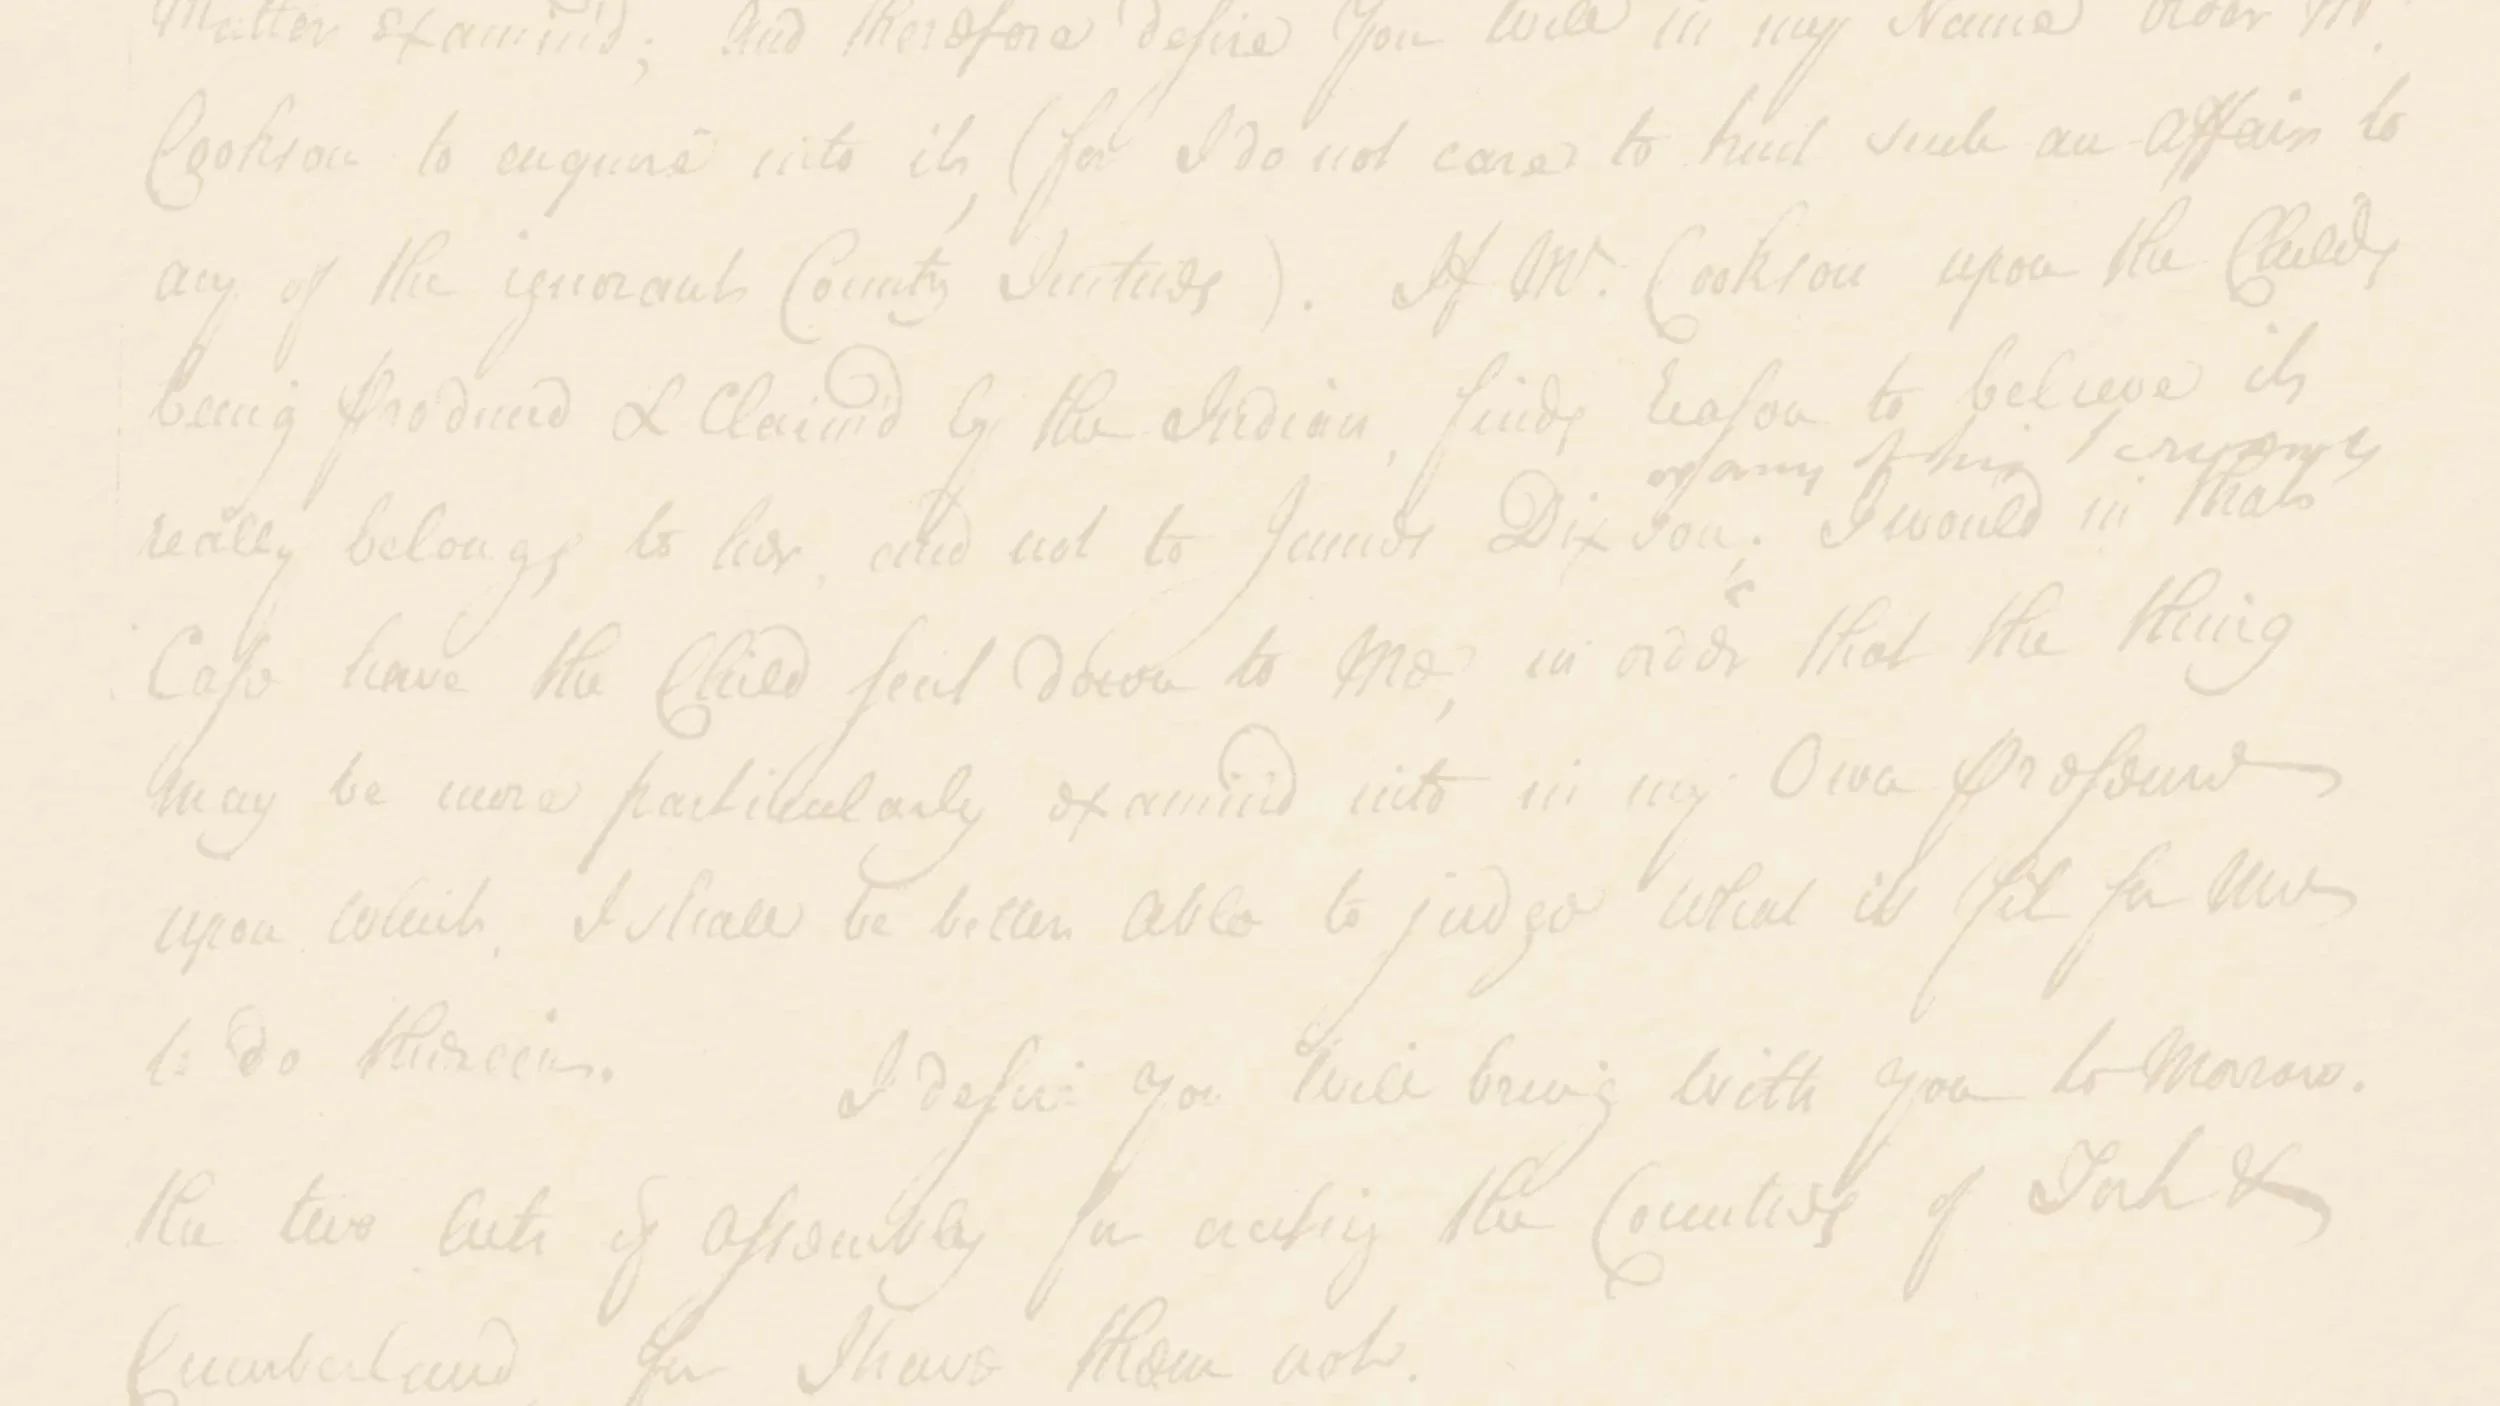 Matter examin'd; And therefore desire you will in my Name order Mr.
Cookson to enquire into it, (for I do not care to trust such an Affair to
any of the ignorant County Justices). If Mr. Cookson upon the Childs
being produced & Claim'd by the Indian, finds reason to believe it
or any of his
really belongs to her, and not to James Dixson; I would in that
Case have the Child sent down to Me, in order that the thing
may be more particularly examin'd into in my Own presence
upon which, I shall be better Able to judge what it is fit for Me
to do therein.
I desire you will bring with you to Morrow.
the two Acts of Assembly for erecting the Counties of York &
Cumberland for I have them not.